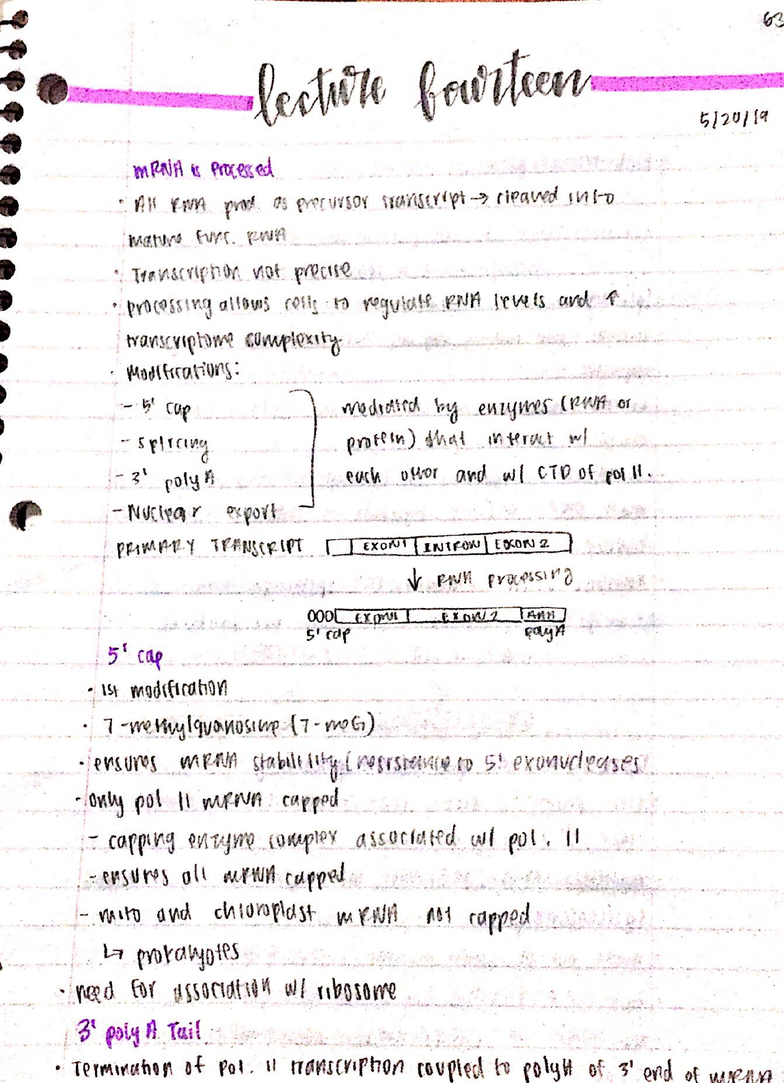 63
lecture fourteen
5/20/19
mRNA is Processed
· All RNA prod. as precursor transcript → cleaved into
mature func. RNA
· Transcription not precise
· processing allows cells to regulate RNA levels and ↑
transcriptome complexity
· Modifications:
- 5' cap
- splicing
- 3' poly A
- Nuclear export
mediated by enzymes (RNA or
protein) that interact w/
each other and w/ CTD of pol II.
PRIMARY TRANSCRIPT EXON 1 INTRON EXON 2
↓ RNA processing
000 EXON 1 EXON 2 AAA
5' cap polyA
5' cap
· 1st modification
· 7-methylguanosine (7-meG)
· ensures mRNA stability (resistance to 5' exonucleases
· only pol II mRNA capped
- capping enzyme complex associated w/ pol. II
- ensures all mRNA capped
- mito and chloroplast mRNA not capped
↳ prokaryotes
· need for association w/ ribosome
3' poly A Tail
· Termination of pol. II transcription coupled to polyA of 3' end of mRNA